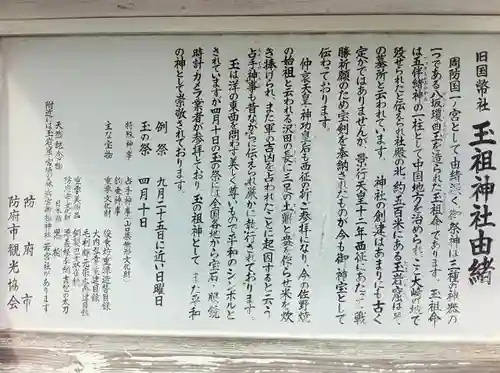 旧国幣社
玉祖神社由緒
周防国一ノ宮として由緒深く御祭神は三種の神器の
一つである八坂瓊曲玉を造られた玉祖命であります。玉祖命
は五伴緒神の一柱として中国地方を治められ、ここ大崎の地で
歿せられたと伝えられ社殿の北、約五百米にある玉岩窟は、そ
の墓所と云われています。 神社の創建はあまりにも古く
定かではありませんが、景行天皇十二年西征にあたって戦
勝祈願のため宝剣を奉納されたものが今も御神宝として
伝わっております。
仲哀天皇、神功皇后も西征の折ご参拝になり、今の佐野焼
の始祖と云われる沢田の長に三足の土鼎と盤を作らせ米を炊
き捧げられ、また軍の吉凶を占われたことに起因すると云う
占手神事が昔ながらに伝えられ厳かに執行されております。
玉は洋の東西を問わず美しく尊いもので平和のシンボルと
されていますが四月十日の玉の祭には全国各地から宝石・眼鏡
時計・カメラ業者が参拝しており玉の祖神として、また平和
の神として崇敬されております。
例祭 九月二十五日に近い日曜日
玉の祭 四月十日
特殊神事 占手神事・山口県無形文化財
釣垂神事
主な宝物 重要文化財
重要美術品
防府市文化財
天然記念物 日本鶏 黒柏
防府市
防府市観光協会